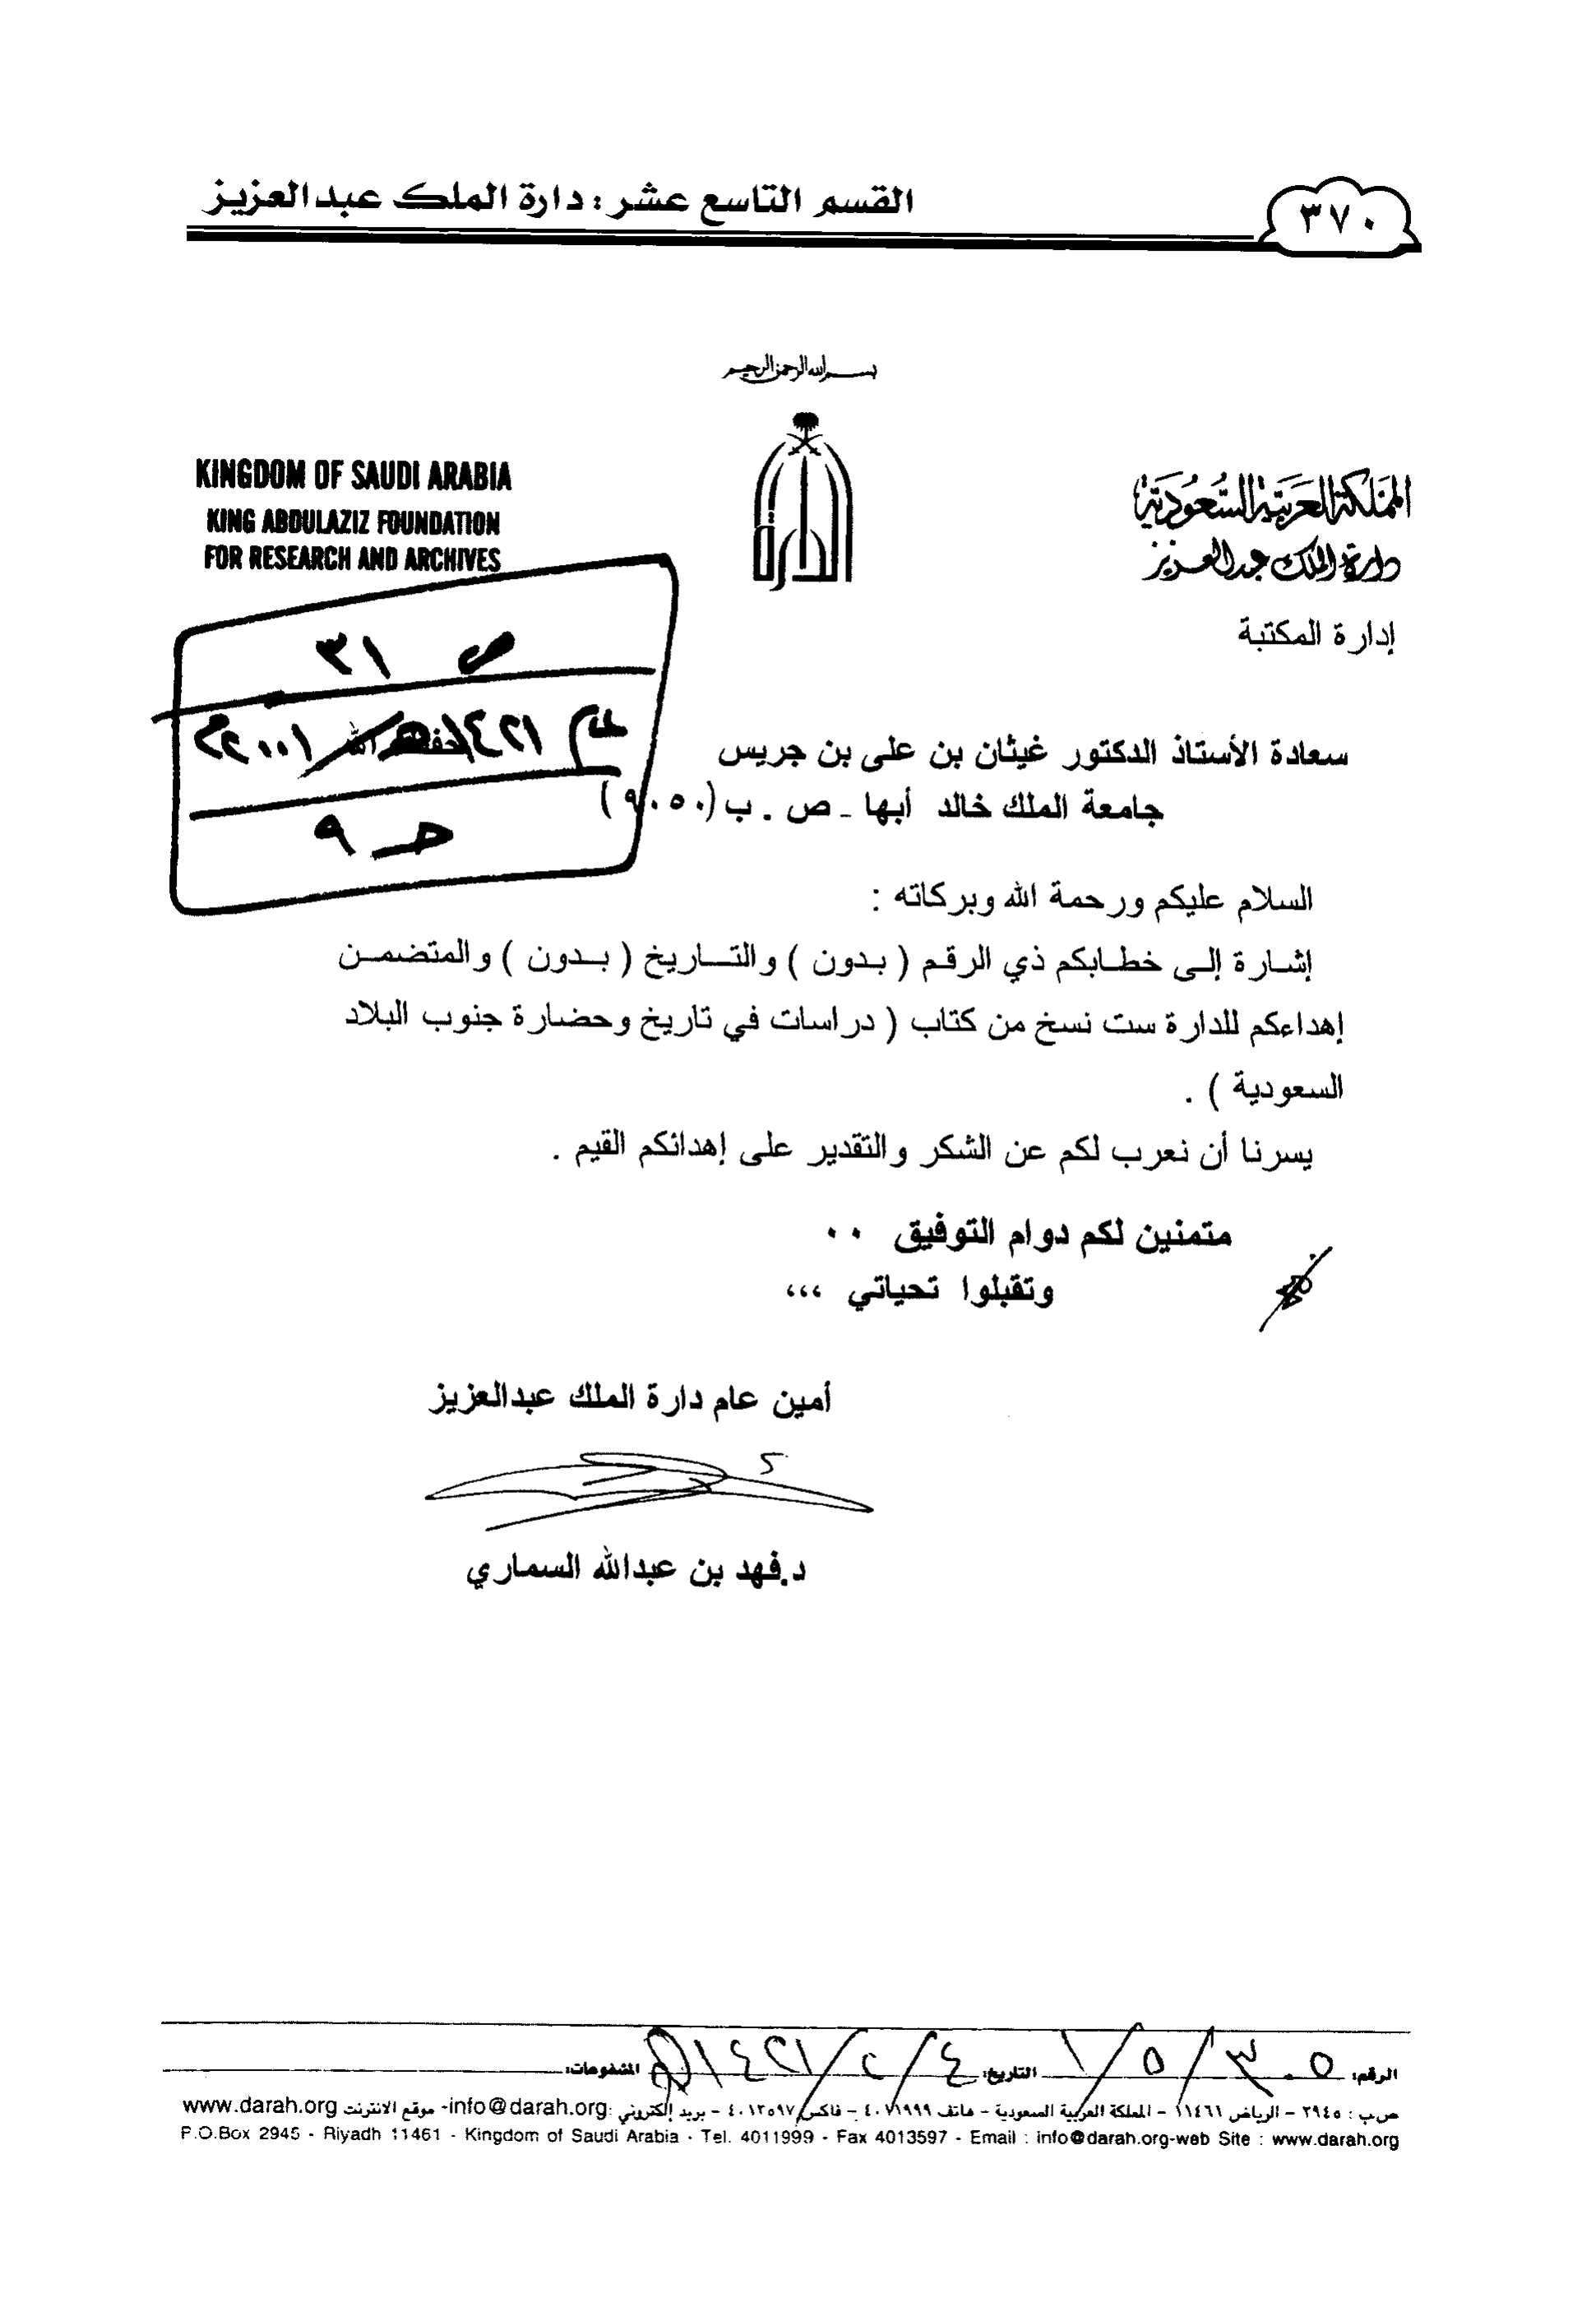 القسم التاسع عشر : دارة الملك عبدالعزيز
٣٧٠
بسم الله الرحمن الرحيم
KINGDOM OF SAUDI ARABIA
KING ABDULAZIZ FOUNDATION
FOR RESEARCH AND ARCHIVES
المملكة العربية السعودية
دارة الملك عبدالعزيز
إدارة المكتبة
الدارة
ص ٣١
عام ١٤٢١هـ / ٢٠٠١م
حـ ٩
سعادة الأستاذ الدكتور غيثان بن على بن جريس
جامعة الملك خالد أبها ـ ص . ب (٩٠٥٠)
السلام عليكم ورحمة الله وبركاته :
إشارة إلى خطابكم ذي الرقم ( بدون ) والتاريخ ( بدون ) والمتضمن
إهداءكم للدارة ست نسخ من كتاب ( دراسات في تاريخ وحضارة جنوب البلاد
السعودية ) .
يسرنا أن نعرب لكم عن الشكر والتقدير على إهدائكم القيم .
متمنين لكم دوام التوفيق ٠٠
وتقبلوا تحياتي ،،،
أمين عام دارة الملك عبدالعزيز
د.فهد بن عبدالله السماري
الرقم: ١/٥/٣٠٥ التاريخ: ٤/٢/١٤٢١هـ المشفوعات:
ص ب : ٢٩٤٥ – الرياض ١١٤٦١ – المملكة العربية السعودية – هاتف ٤٠١١٩٩٩ – فاكس ٤٠١٣٥٩٧ – بريد إلكتروني :info@darah.org- موقع الانترنت www.darah.org
P.O.Box 2945 - Riyadh 11461 - Kingdom of Saudi Arabia - Tel. 4011999 - Fax 4013597 - Email : info@darah.org-web Site : www.darah.org